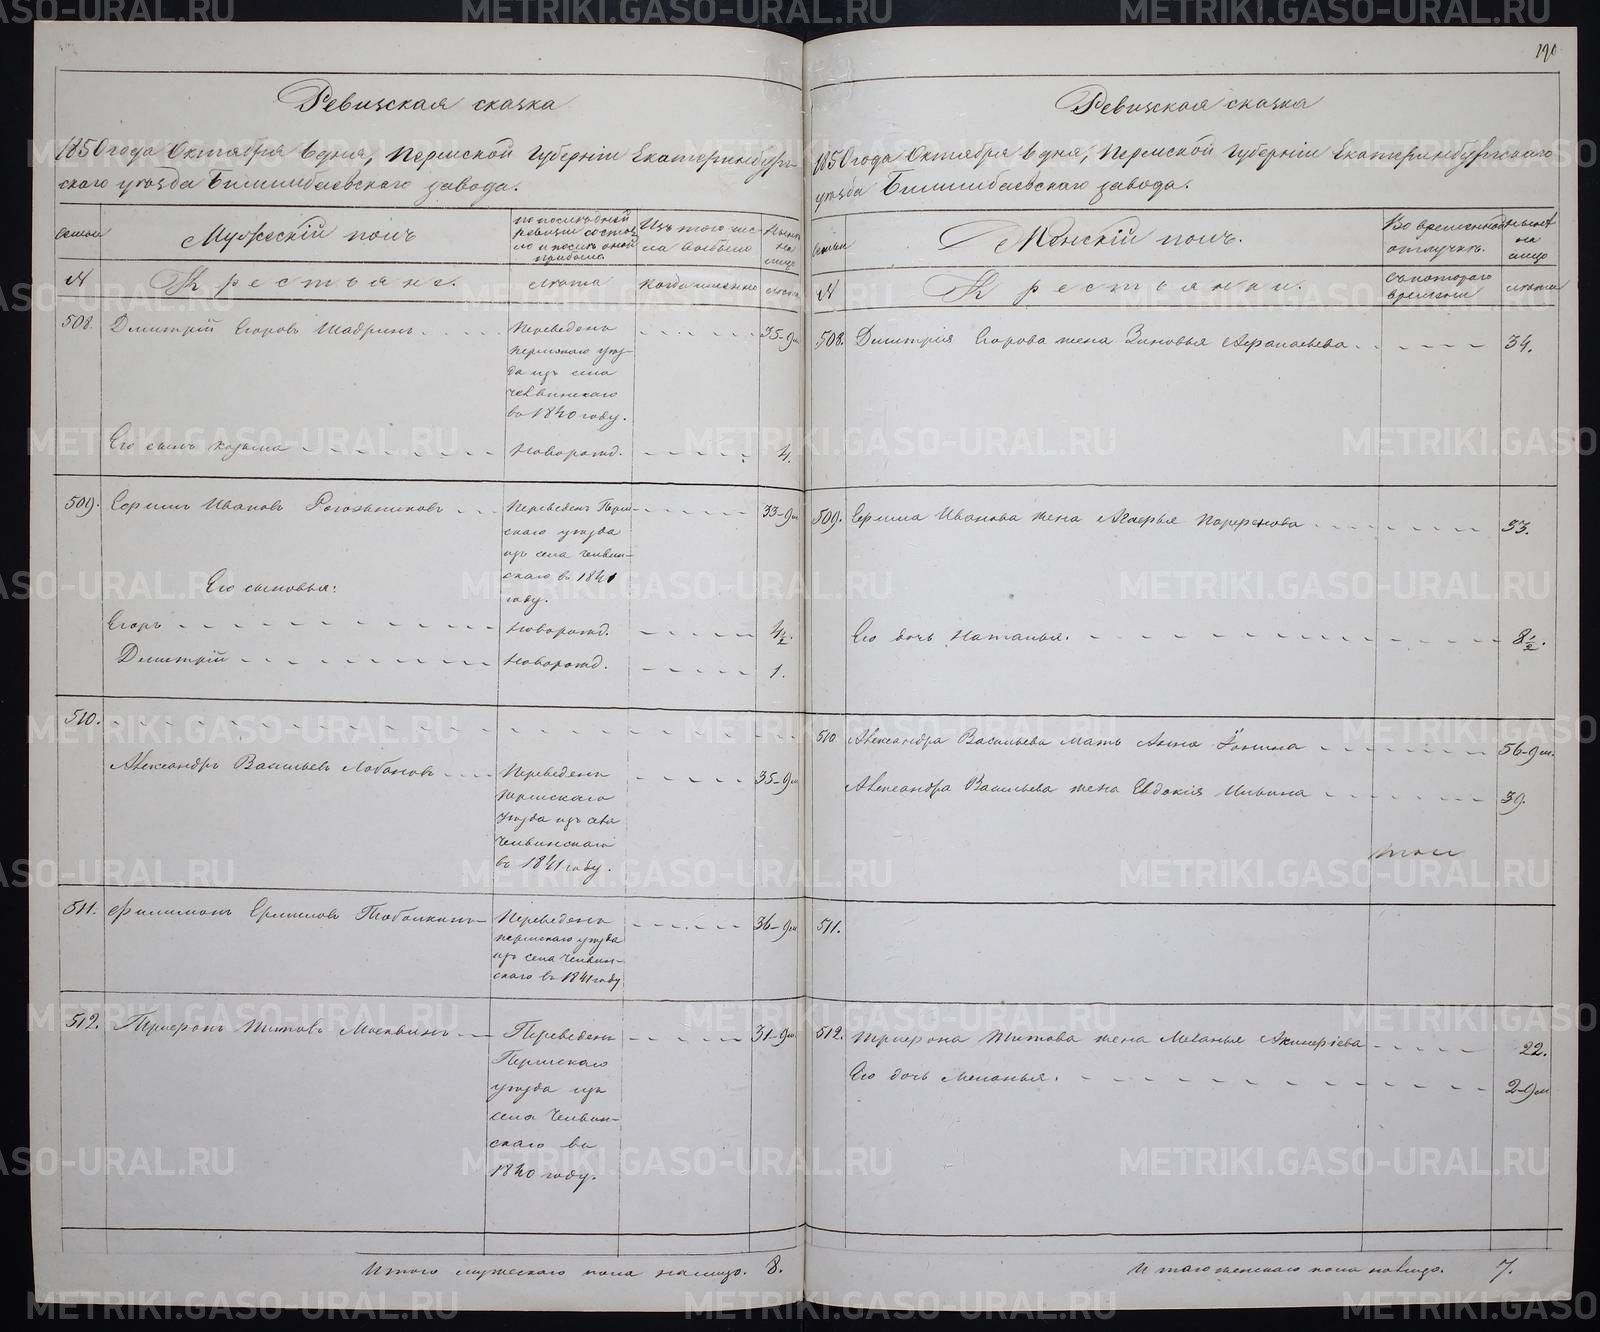 Ревизская сказка
1850 года Октября 6 дня, Пермской Губернiи Екатеринбург-
скаго уѣзда Билимбаевскаго завода.
Семьи
Мужескiй полъ
по послѣдней ревизiи состояло и послѣ оной прибыло
Изъ того числа выбыло
Нынѣ на лицо
№
Крестьяне.
лѣта
Когда именно
лѣта
508. Дмитрiй Егоровъ Шадринъ
Переведенъ
пермскаго уѣз-
да изъ села
Челвинскаго
въ 1840 году.
35-9м
Его сынъ Козьма
Новорожд.
4.
509. Ермилъ Ивановъ Рогозниковъ
Переведенъ Перм-
скаго уѣзда
изъ села Челвин-
скаго въ 1841
году.
33-9м
Его сыновья:
Егоръ
Новорожд.
4½.
Дмитрiй
Новорожд.
1.
510.
Александръ Васильевъ Лобановъ
Переведенъ
Пермскаго
Уѣзда изъ села
Челвинскаго
въ 1841 году.
35-9м
511. Филимонъ Ермиловъ
Переведенъ
пермскаго уѣзда
изъ села Челвин-
скаго въ 1841 году
36-9м
512. Трифонъ Титовъ Москвинъ
Переведенъ
Пермскаго
уѣзда изъ
села Челвин-
скаго въ
1840 году.
31-9м
Итого мужескаго пола налицо. 8.
190
Ревизская сказка
1850 года Октября 6 дня, Пермской Губернiи Екатеринбургскаго
уѣзда Билимбаевскаго завода.
Семьи
Женскiй полъ.
Во временной отлучкѣ.
Нынѣ на лицо
№
Крестьянки.
Съ котораго времени
лѣта
508. Дмитрiя Егорова жена Зиновья Афанасьева
34.
509. Ермила Иванова жена Агафья Парфенова
33.
Его дочь Наталья.
8½.
510. Александра Васильева мать Анна Iонина
56-9м.
Александра Васильева жена Евдокiя Ильина
39.
511.
512. Трифона Титова жена Меланья
22.
Его дочь Меланья.
2-9м
Итого женскаго пола налицо. 7.
METRIKI.GASO-URAL.RU